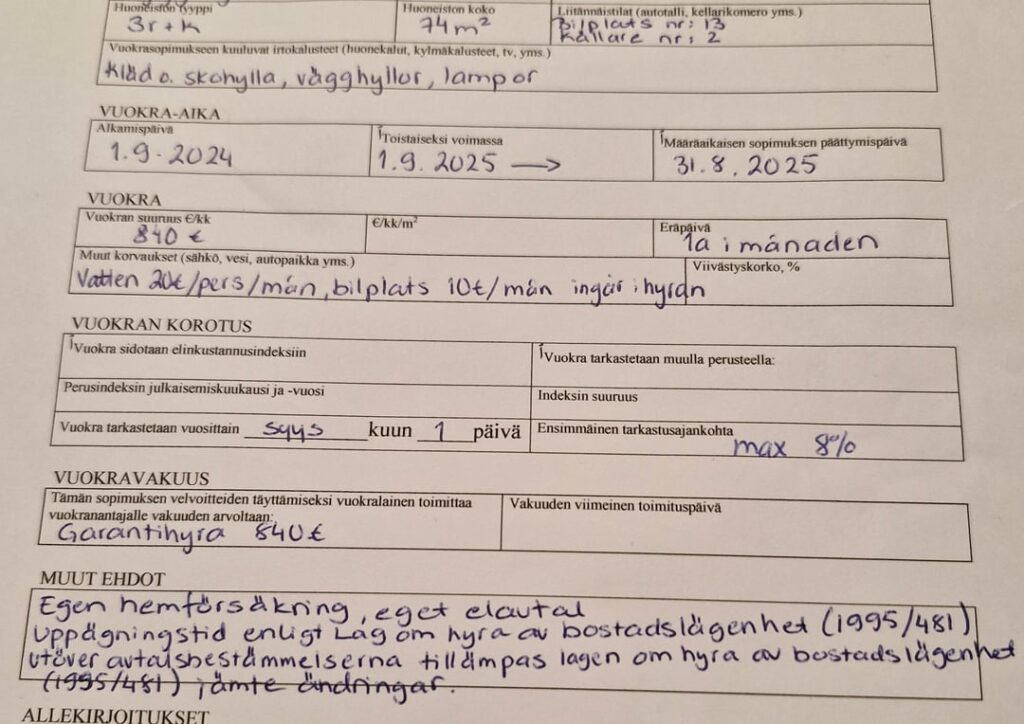 Huoneiston tyyppi
3r+k
Huoneiston koko
74m²
Liitännäistilat (autotalli, kellarikomero yms.)
Bilplats nr: 13
Källare nr: 2
Vuokrasopimukseen kuuluvat irtokalusteet (huonekalut, kylmäkalusteet, tv, yms.)
Kläd o. skohylla, vägghyllor, lampor
VUOKRA-AIKA
Alkamispäivä
1.9.2024
Toistaiseksi voimassa
1.9.2025 →
Määräaikaisen sopimuksen päättymispäivä
31.8.2025
VUOKRA
Vuokran suuruus €/kk
840 €
€/kk/m²
Eräpäivä
1a i månaden
Muut korvaukset (sähkö, vesi, autopaikka yms.)
Vatten 20€/pers/mån, bilplats 10€/mån ingår i hyran
Viivästyskorko, %
VUOKRAN KOROTUS
Vuokra sidotaan elinkustannusindeksiin
Vuokra tarkastetaan muulla perusteella:
Perusindeksin julkaisemiskuukausi ja -vuosi
Indeksin suuruus
Vuokra tarkastetaan vuosittain syys kuun 1 päivä
Ensimmäinen tarkastusajankohta
max 8%
VUOKRAVAKUUS
Tämän sopimuksen velvoitteiden täyttämiseksi vuokralainen toimittaa
vuokranantajalle vakuuden arvoltaan:
Garantihyra 840€
Vakuuden viimeinen toimituspäivä
MUUT EHDOT
Egen hemförsäkring, eget elavtal
Uppägningstid enligt Lag om hyra av bostadslägenhet (1995/481)
utöver avtalsbestämmelserna tillämpas lagen om hyra av bostadslägenhet
(1995/481) jämte ändringar.
ALLEKIRJOITUKSET